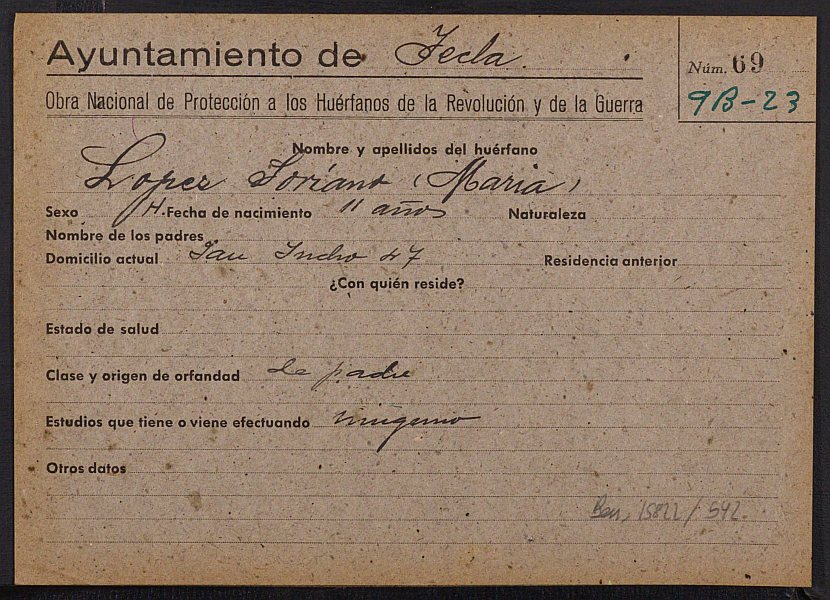 Ayuntamiento de Yecla.
Núm. 69
9B-23
Obra Nacional de Protección a los Huérfanos de la Revolución y de la Guerra
Nombre y apellidos del huérfano
Lopez Soriano (Maria)
Sexo H. Fecha de nacimiento 11 años Naturaleza
Nombre de los padres
Domicilio actual San 47 Residencia anterior
¿Con quién reside?
Estado de salud
Clase y origen de orfandad de padre
Estudios que tiene o viene efectuando
Otros datos
15822/542